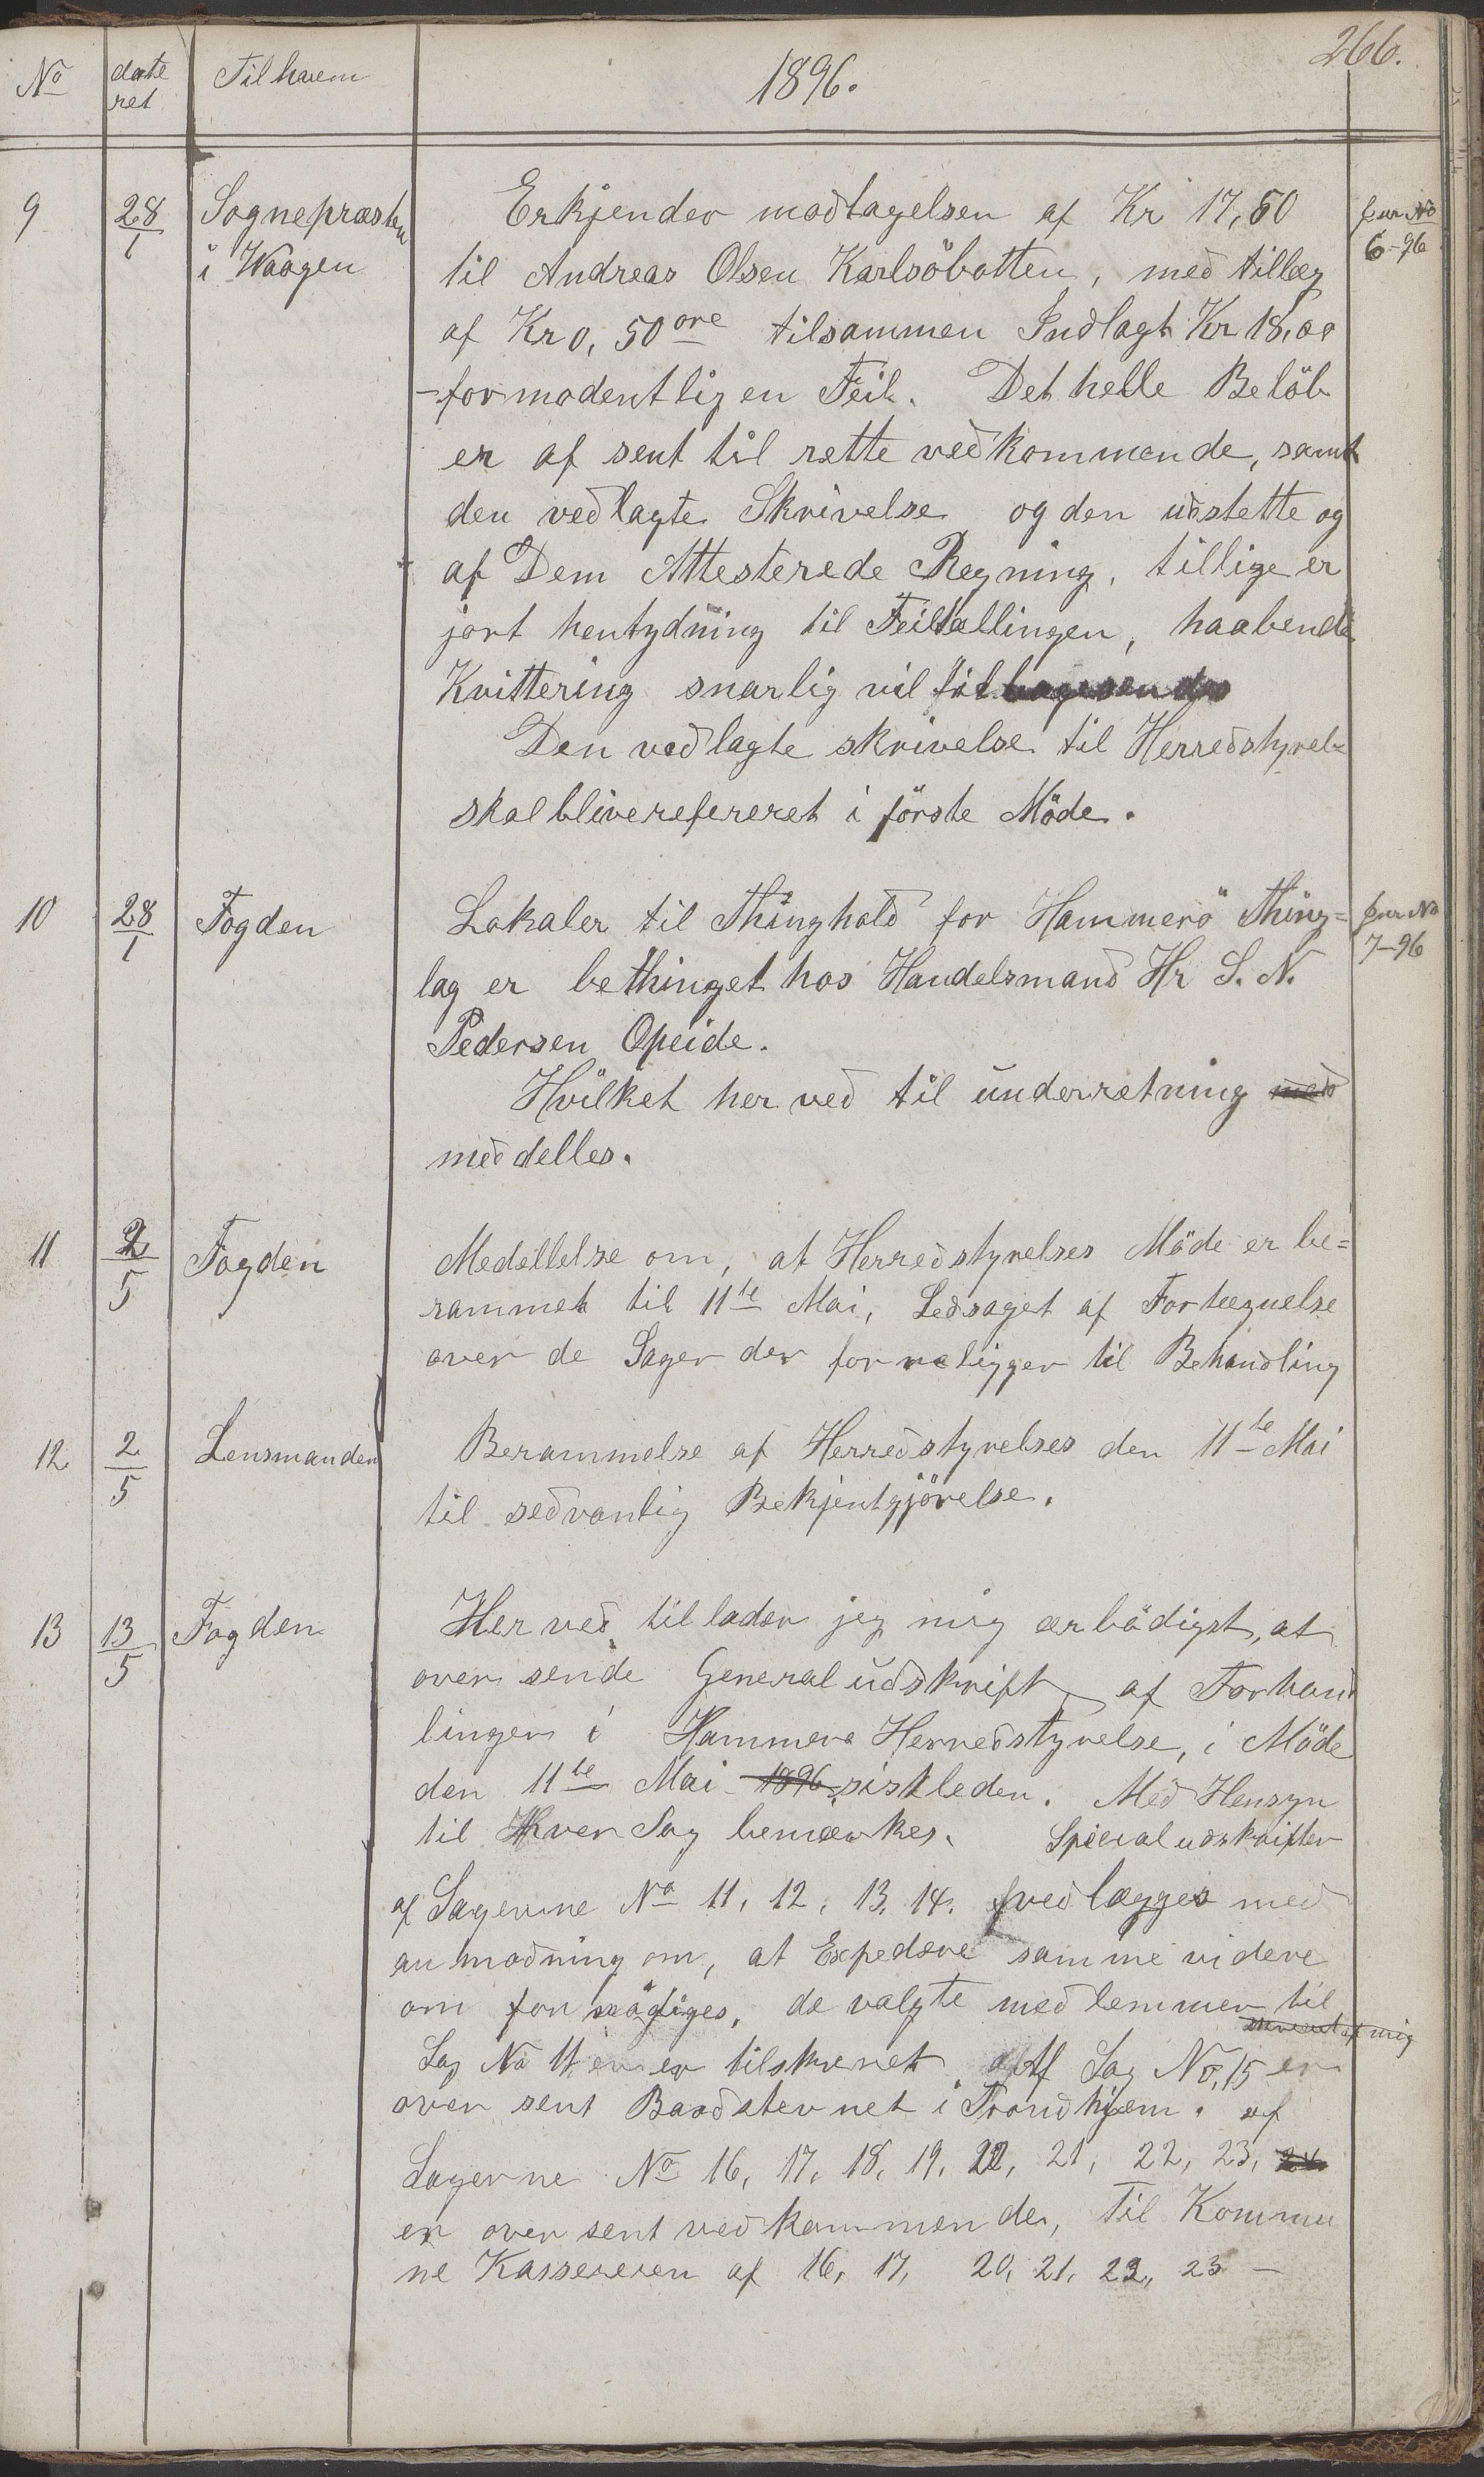 266.
No date Tilhvem 1896.
ret
9 28/1 Sognepræsten Erkjender modtagelsen af Kr 17,50 Jur No
i Waagen til Andreas Olsen Karlsöbotten, med tillæg 6-96
af Kr 0,50 ore tilsammen Indlagt Kr 18,00
-formodentlig en Feil. Det helle Belöb
er af sent til rette vedkommende, samt
den vedlagte Skrivelse og den udstette og
af Dem Attesterede Regning, tillige er
jort hentydning til Feiltællingen, haabende
Kvittering snarlig vil tilbagesendes
Den vedlagte skrivelse til Herredstyrels
skal blive refereret i förste Möde.
10 28/1 Fogden Lokaler til Thinghold for Hammerö Thing= Jur No
lag er bethinget hos Handelsmand Hr S. N. 7-96
Pedersen Opeide.
Hvilket her ved til underretning med
meddelles.
11 2/5 Fogden Medellelse om, at Herredstyrelses Möde er be=
rammet til 11te Mai, Ledsaget af Fortegnelse
over de Sager der forreligger til Behandling
12 2/5 Lensmanden Berammelse af Herredstyrelses den 11te Mai
til sedvanlig Bekjentgjörelse.
13 13/5 Fogden Her ved tillader jeg mig ærbödigst, at
over sende General udskrift af Forhand
linger i Hammerö Herredstyrelse, i Möde
den 11te Mai 1896 sistleden. Med Hensyn
til Hver Sag bemærkes. Special udskrifter
af Sagerne No 11, 12, 13, 14. vedlægges med
anmodning om, at Expedære samme videre
om for nödiges, de valgte medlemmer til
af mig
Sag No 11 er tilskrevet Af Sag No, 15 er
over sent Baadstevnet i Trondhjem. af
Sagerne No 16, 17, 18, 19, 22, 21, 22, 23, 24
er over sent ved kommende, Til Kommu
ne Kassereren af 16, 17, 20, 21, 22, 23 -